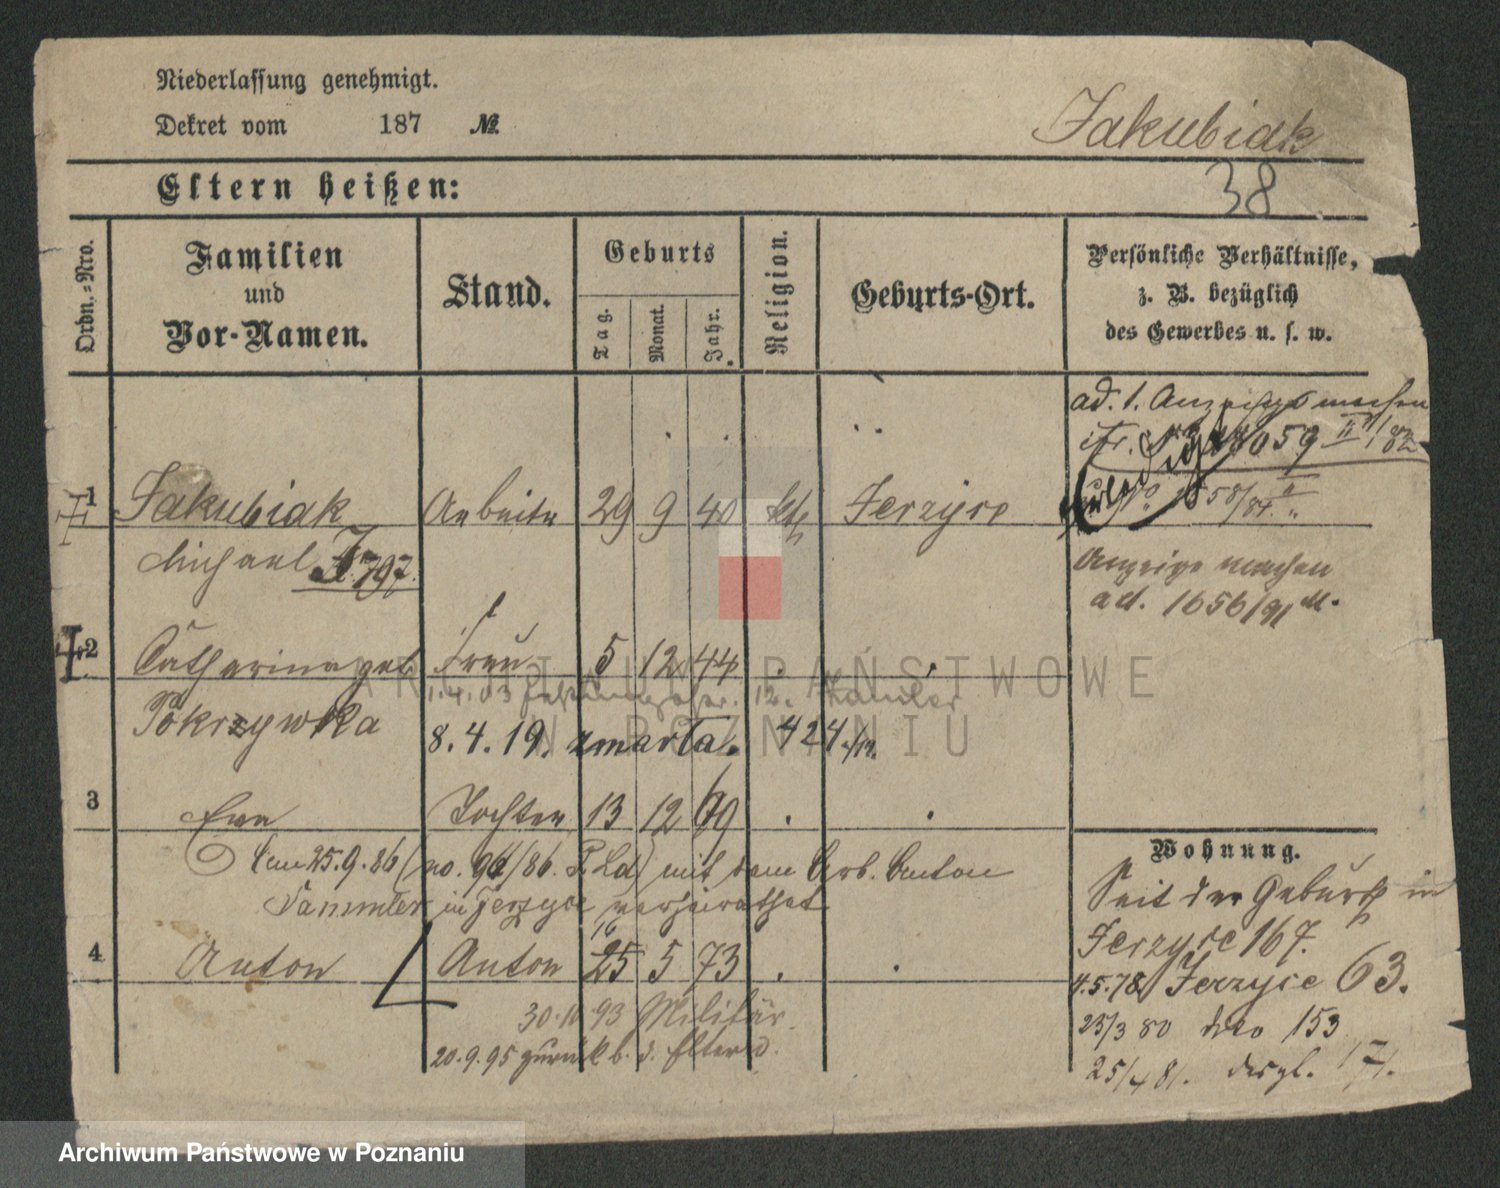 Niederlassung genehmigt.
Dekret vom 187 №
Jakubiak
38
Eltern heißen:
Ordn.-Nro.
Familien
und
Vor-Namen.
Stand.
Geburts
Tag.
Monat.
Jahr.
Religion.
Geburts-Ort.
Persönliche Verhältnisse,
z. B. bezüglich
des Gewerbes u. s. w.
ad. 1. Anzeige machen
8059 II/82
58/84 II
1 Jakubiak Arbeiter 29 9 40 kth Jerzyce
Michael J. 797.
Anzeige machen
ad. 1656/91 M.
2 Catharina geb. Frau 5 12 44
Pokrzywka
1.4.03
8.4.19. zmarła. 424./19.
3 Ewa Tochter 13 12 69
am 25.9.86 (no. 94/86. P. Ld) mit dem Arb. Anton
Sammler in Jerzyce verheirathet
4 Anton Anton 16 25 5 73
30.10.93 Militär.
20.9.95 zurück b. d. Eltern.
Wohnung.
Seit der Geburt in
Jerzyce 167.
4.5.78 Jerzyce 63.
23/3 80 dto 153
25/4 81. desgl. 171.
ARCHIWUM PAŃSTWOWE
W POZNANIU
Archiwum Państwowe w Poznaniu